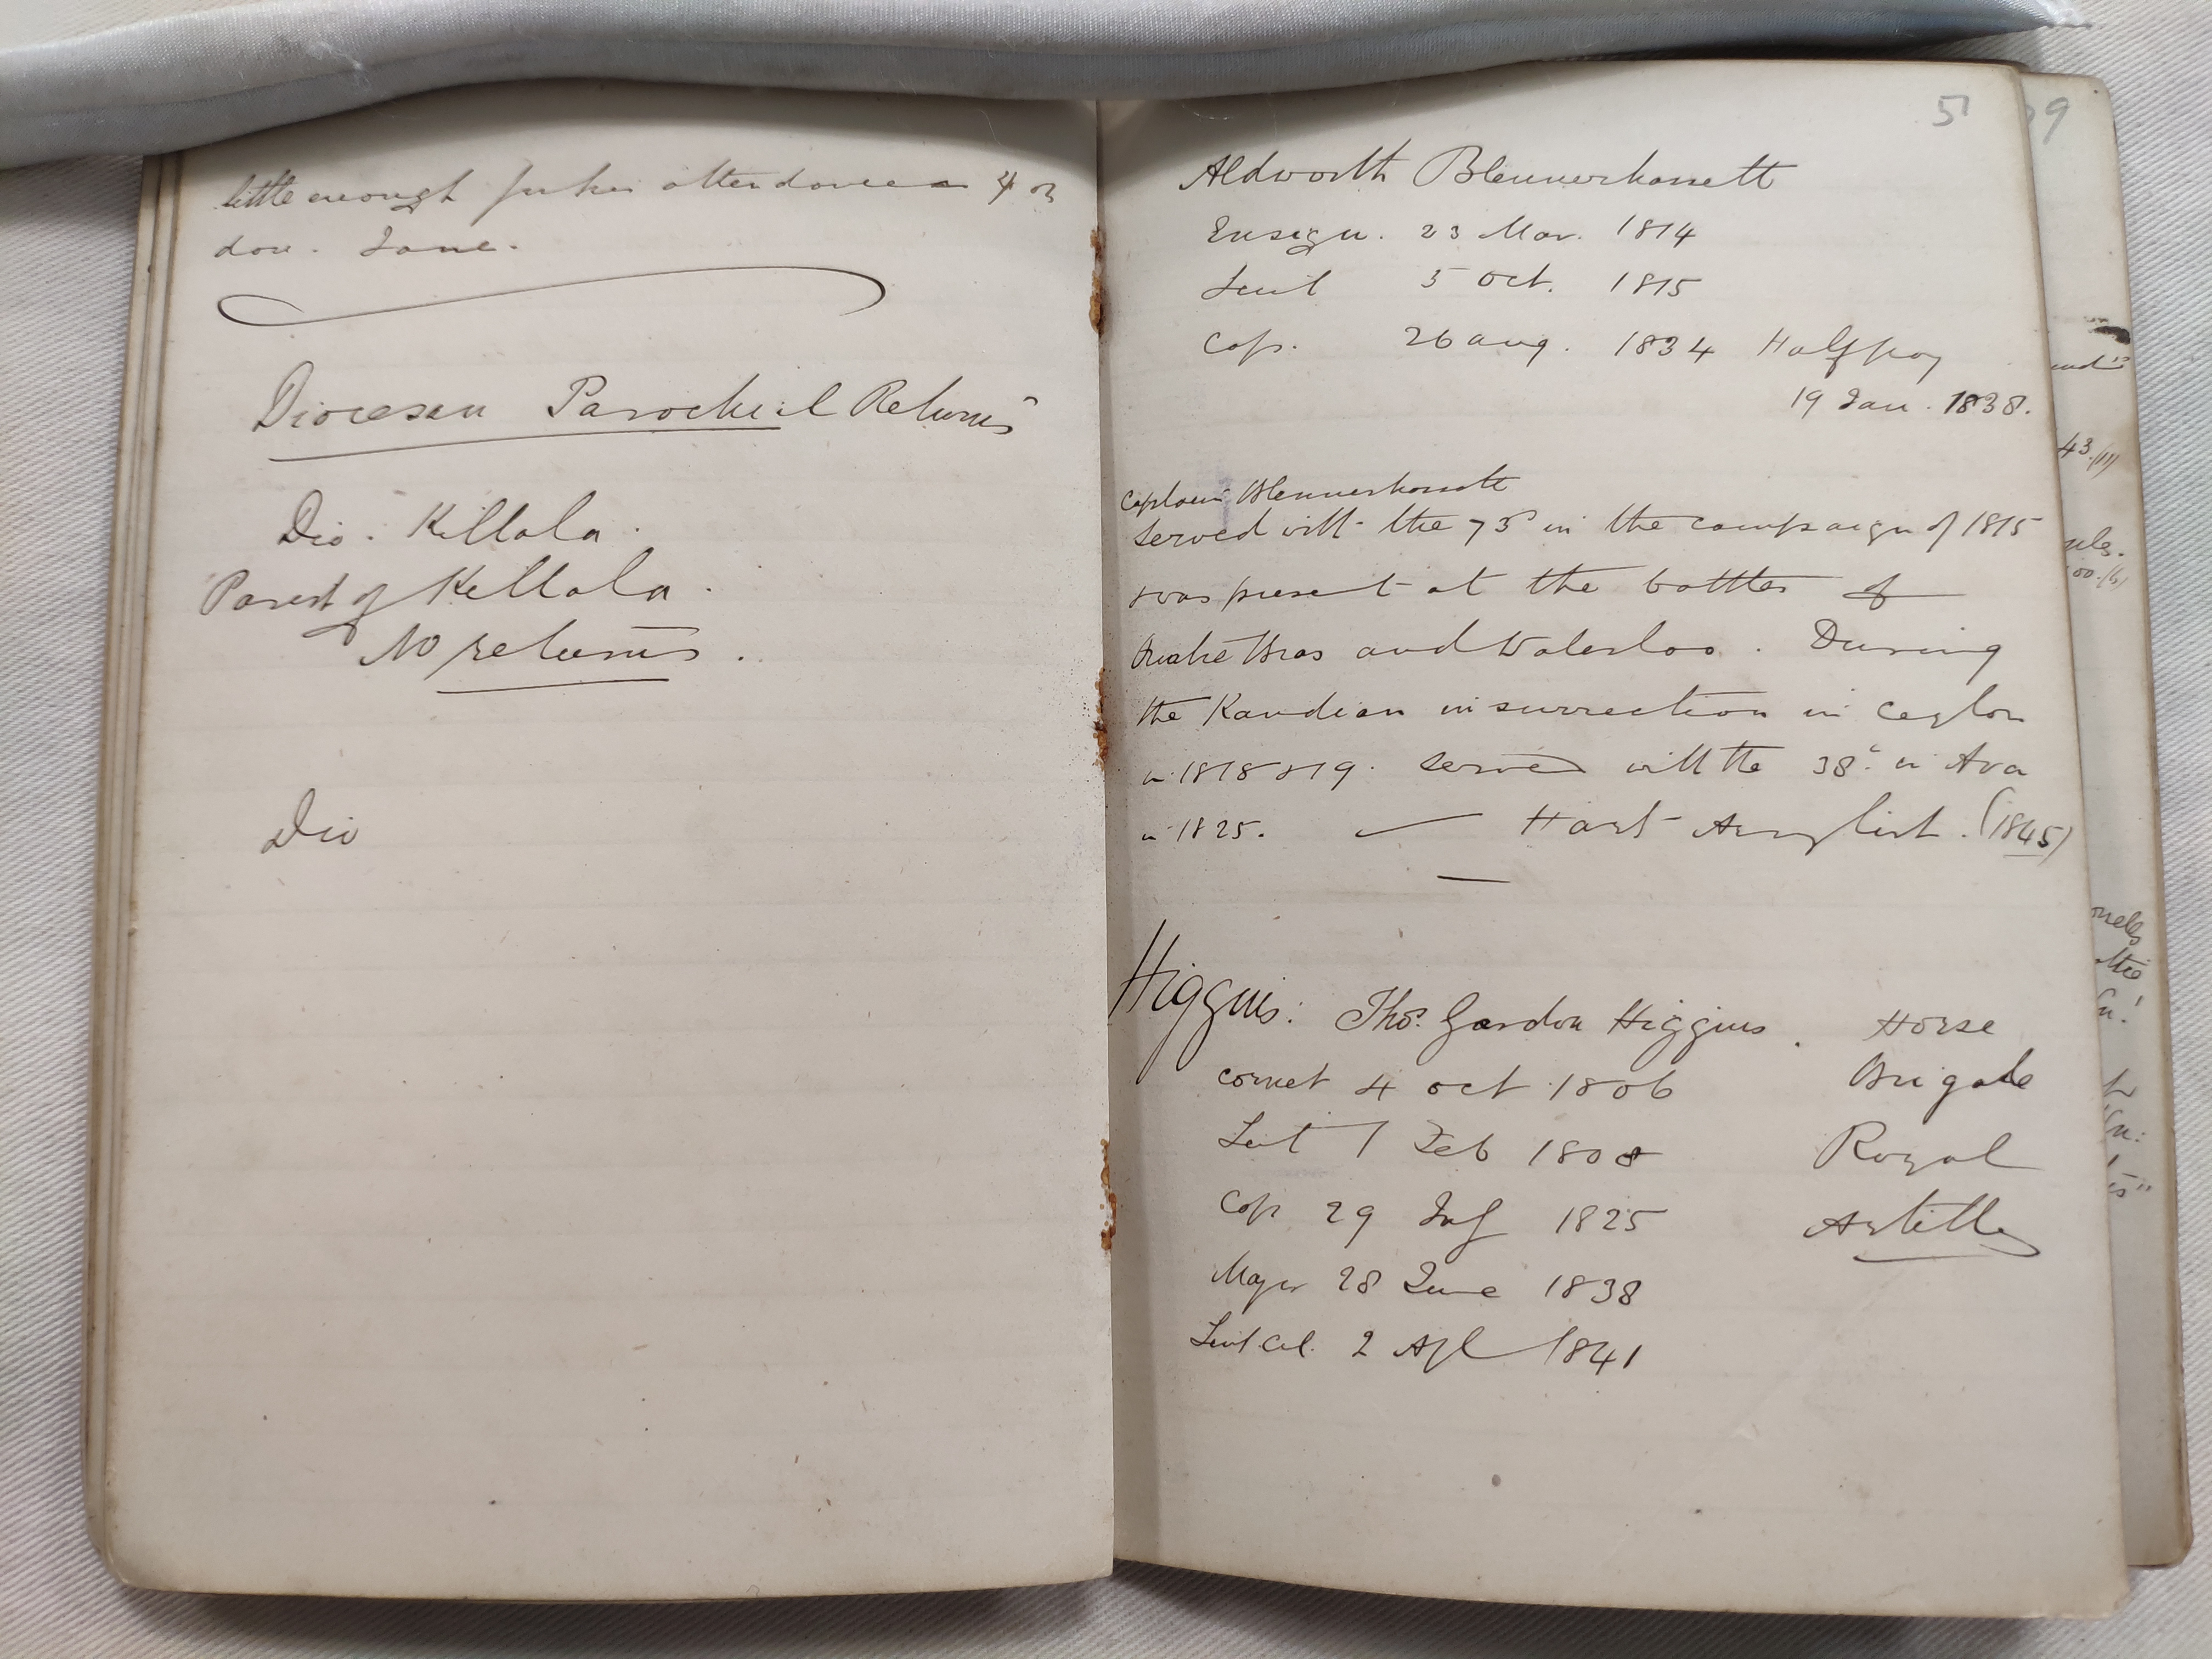 little enough for his attendance 4 or
don. Jane.
Diocesan Parochial Returns
Dio. Killala.
Parish of Killala.
No returns.
Dio
51
Aldworth Blennerhassett
Ensign. 23 Mar. 1814
Leiut 5 Oct. 1815
Cap. 26 Aug. 1834 Halfpay
19 Jan. 1838.
Captain Blennerhassett
served with the 73d in the campaign of 1815
was present at the battles of
Quatre Bras and Waterloo. During
the Kandian insurrection in Ceylon
in 1818 & 19. served with the 38th in Ava
in 1825. — Hart Army List. (1845)
Higgins: Thos. Gordon Higgins. Horse
Cornet 4 Oct 1806 Brigade
Leut 1 Feb 1808 Royal
Cap 29 July 1825 Artillery
Major 28 June 1838
Leiut Col. 2 Apl 1841
39
43.(11)